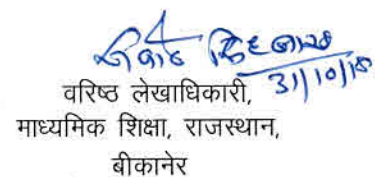 31/10/18
वरिष्ठ लेखाधिकारी,
माध्यमिक शिक्षा, राजस्थान,
बीकानेर